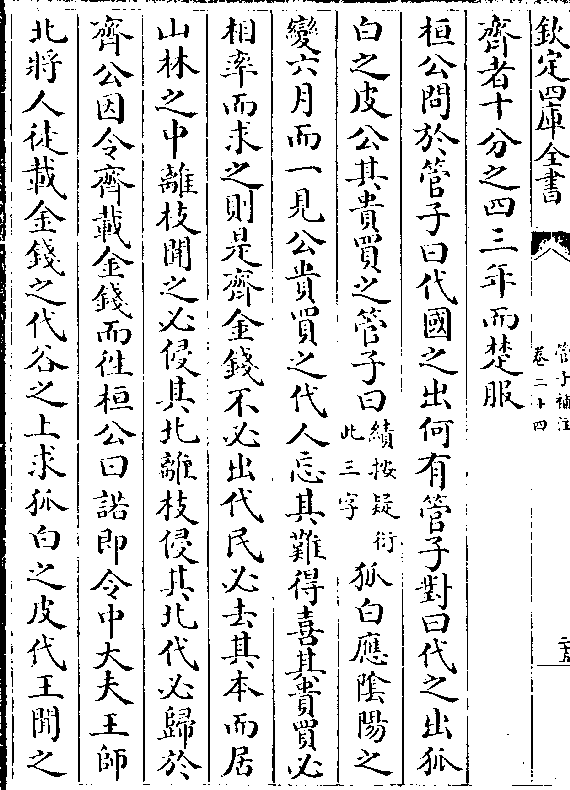 欽定四庫全書
管子補注
卷二十四
齊者十分之四三年而楚服
桓公問於管子曰代國之出何有管子對曰代之出狐
白之皮公其貴買之管子曰續按疑衍此三字狐白應陰陽之
變六月而一見公貴買之代人忘其難得喜其貴買必
相率而求之則是齊金錢不必出代民必去其本而居
山林之中離枝聞之必侵其北離枝侵其北代必歸於
齊公因令齊載金錢而徃桓公曰諾即令中大夫王師
北將人徒載金錢之代谷之上求狐白之皮代王聞之